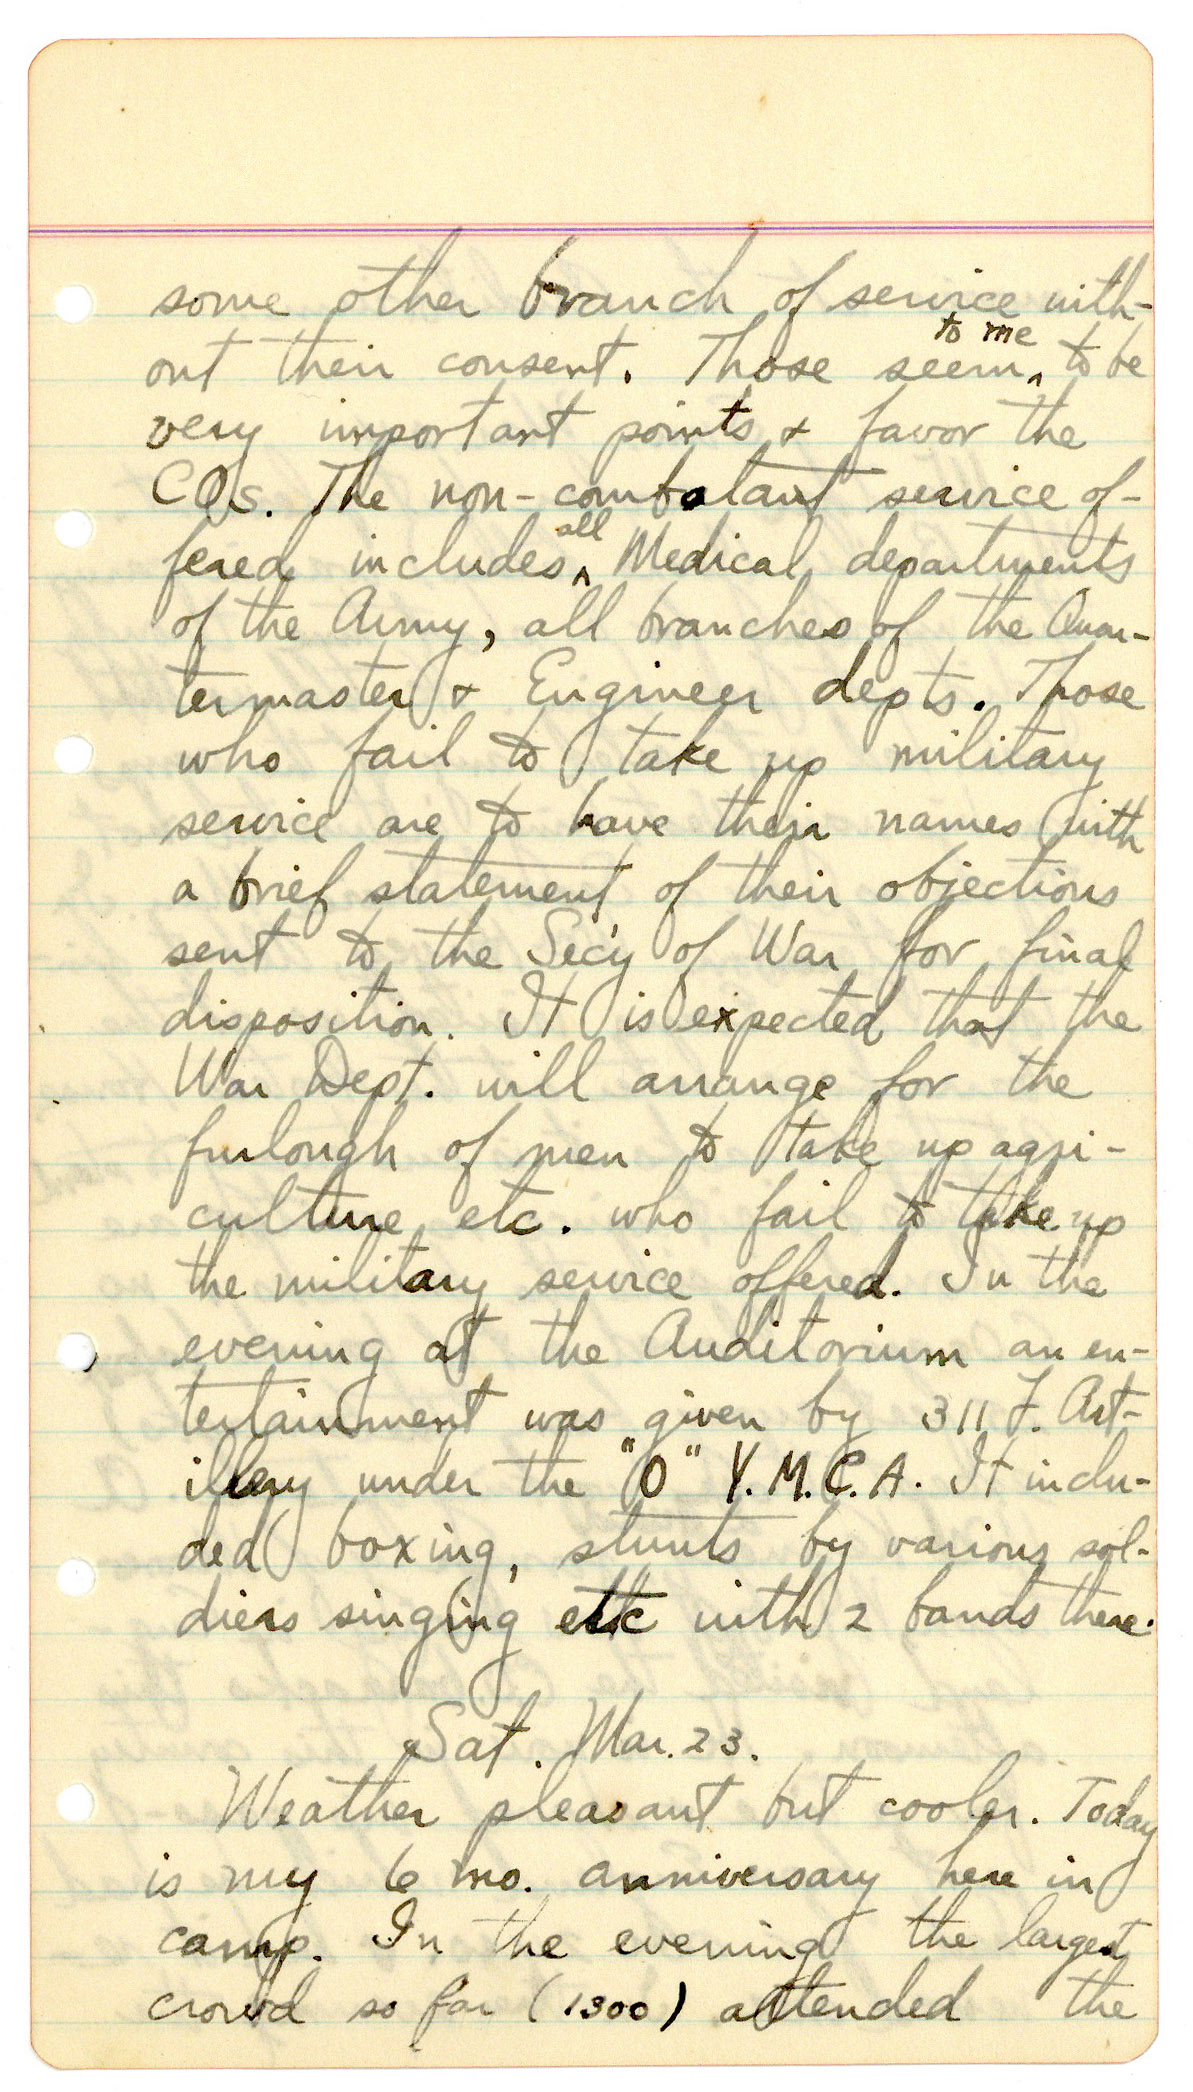 some other branch of service with-
out their consent. Those seem ^to me to be
very important points & favor the
COs. The non-combatant service of-
fered includes ^all Medical departments
of the Army, all branches of the Quar-
termaster & Engineer depts. Those
who fail to take up military
service are to have their names with
a brief statement of their objections
sent to the Sec'y of War for final
disposition. It is expected that the
War Dept. will arrange for the
furlough of men to take up agri-
culture etc. who fail to take up
the military service offered. In the
evening at the Auditorium an en-
tertainment was given by 311 F. Art-
illery under the "O" Y.M.C.A. It inclu-
ded boxing, stunts by various sol-
diers singing etc with 2 bands there.
Sat. Mar. 23.
Weather pleasant but cooler. Today
is my 6 mo. anniversary here in
camp. In the evening the largest
crowd so far (1300) attended the